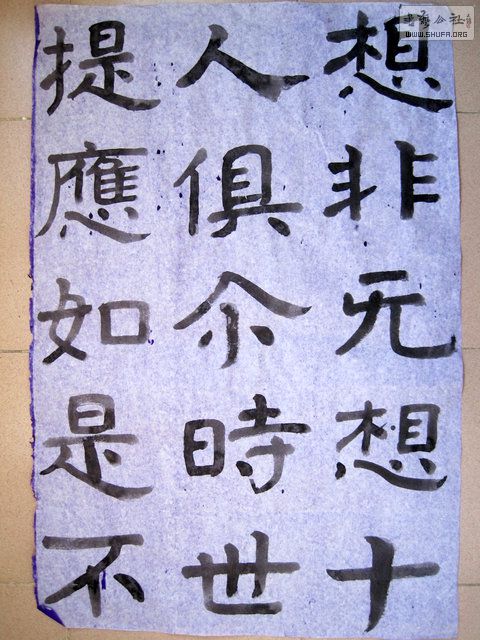 想非无想十
人俱尒時世
提應如是不
书法公社
WWW.SHUFA.ORG